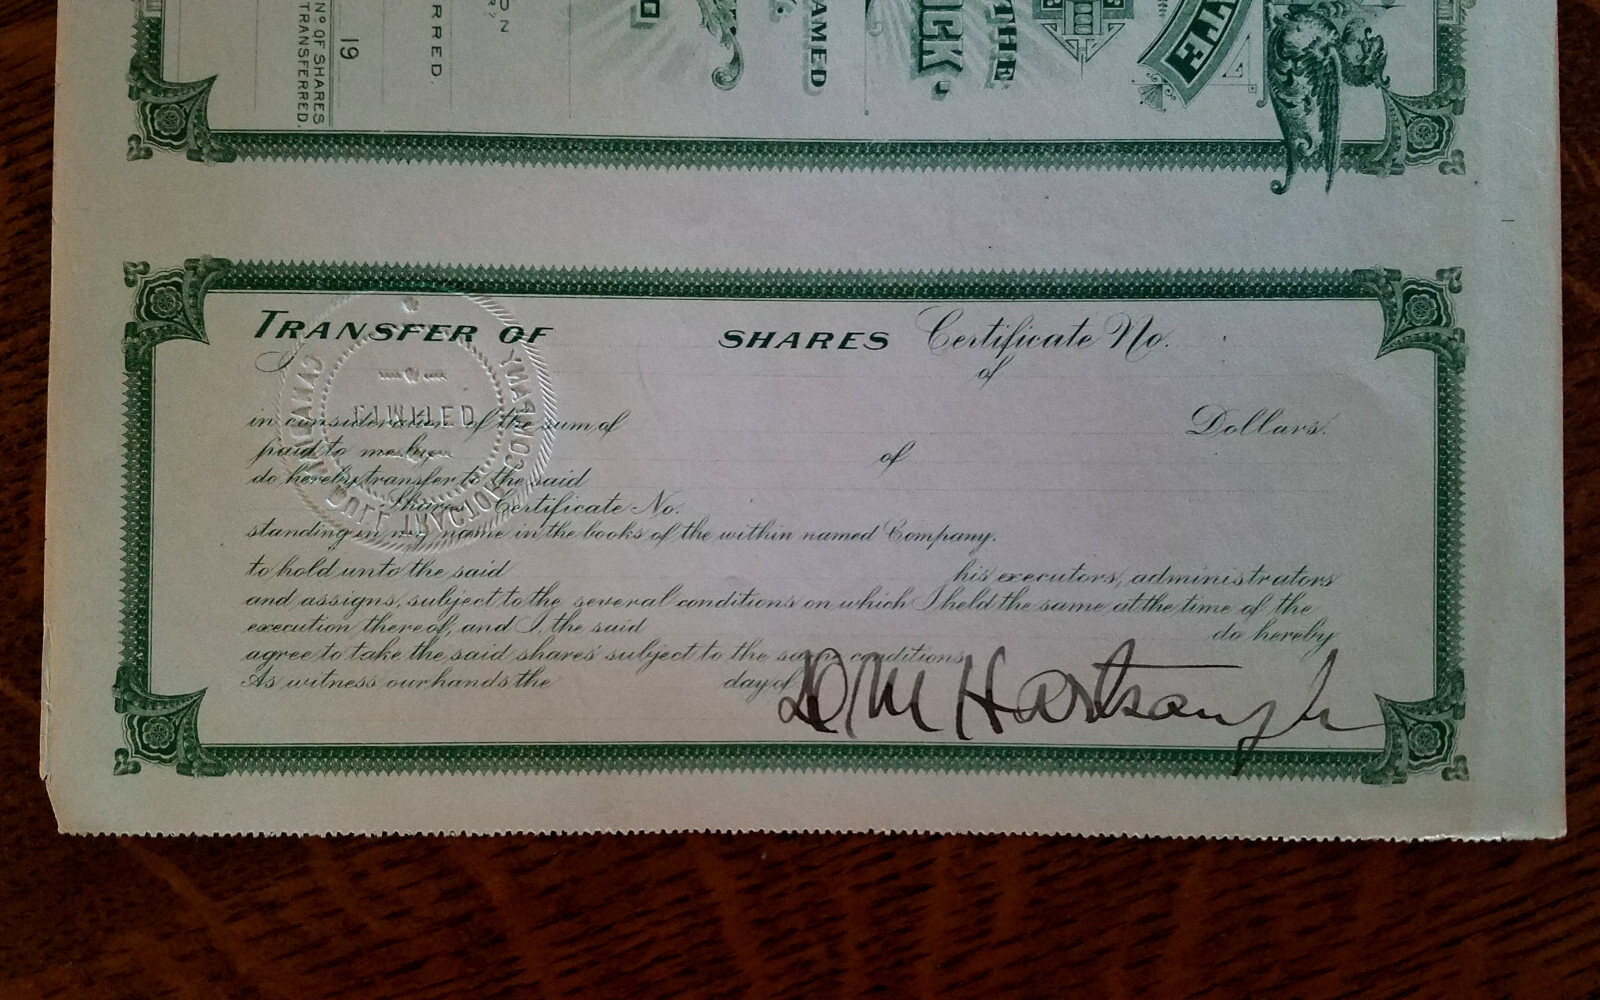 Nº OF SHARES
TRANSFERRED.
19
RRED.
ON
AMED
THE
TRANSFER OF SHARES Certificate No.
of
in consideration of the sum of Dollars.
paid to me by of
do hereby transfer to the said
Shares Certificate No.
standing in my name in the books of the within named Company.
to hold unto the said his executors, administrators
and assigns, subject to the several conditions on which I held the same at the time of the
execution thereof, and I, the said do hereby
agree to take the said shares subject to the same conditions
As witness our hands the day of
DM Hartsough
LIMITED